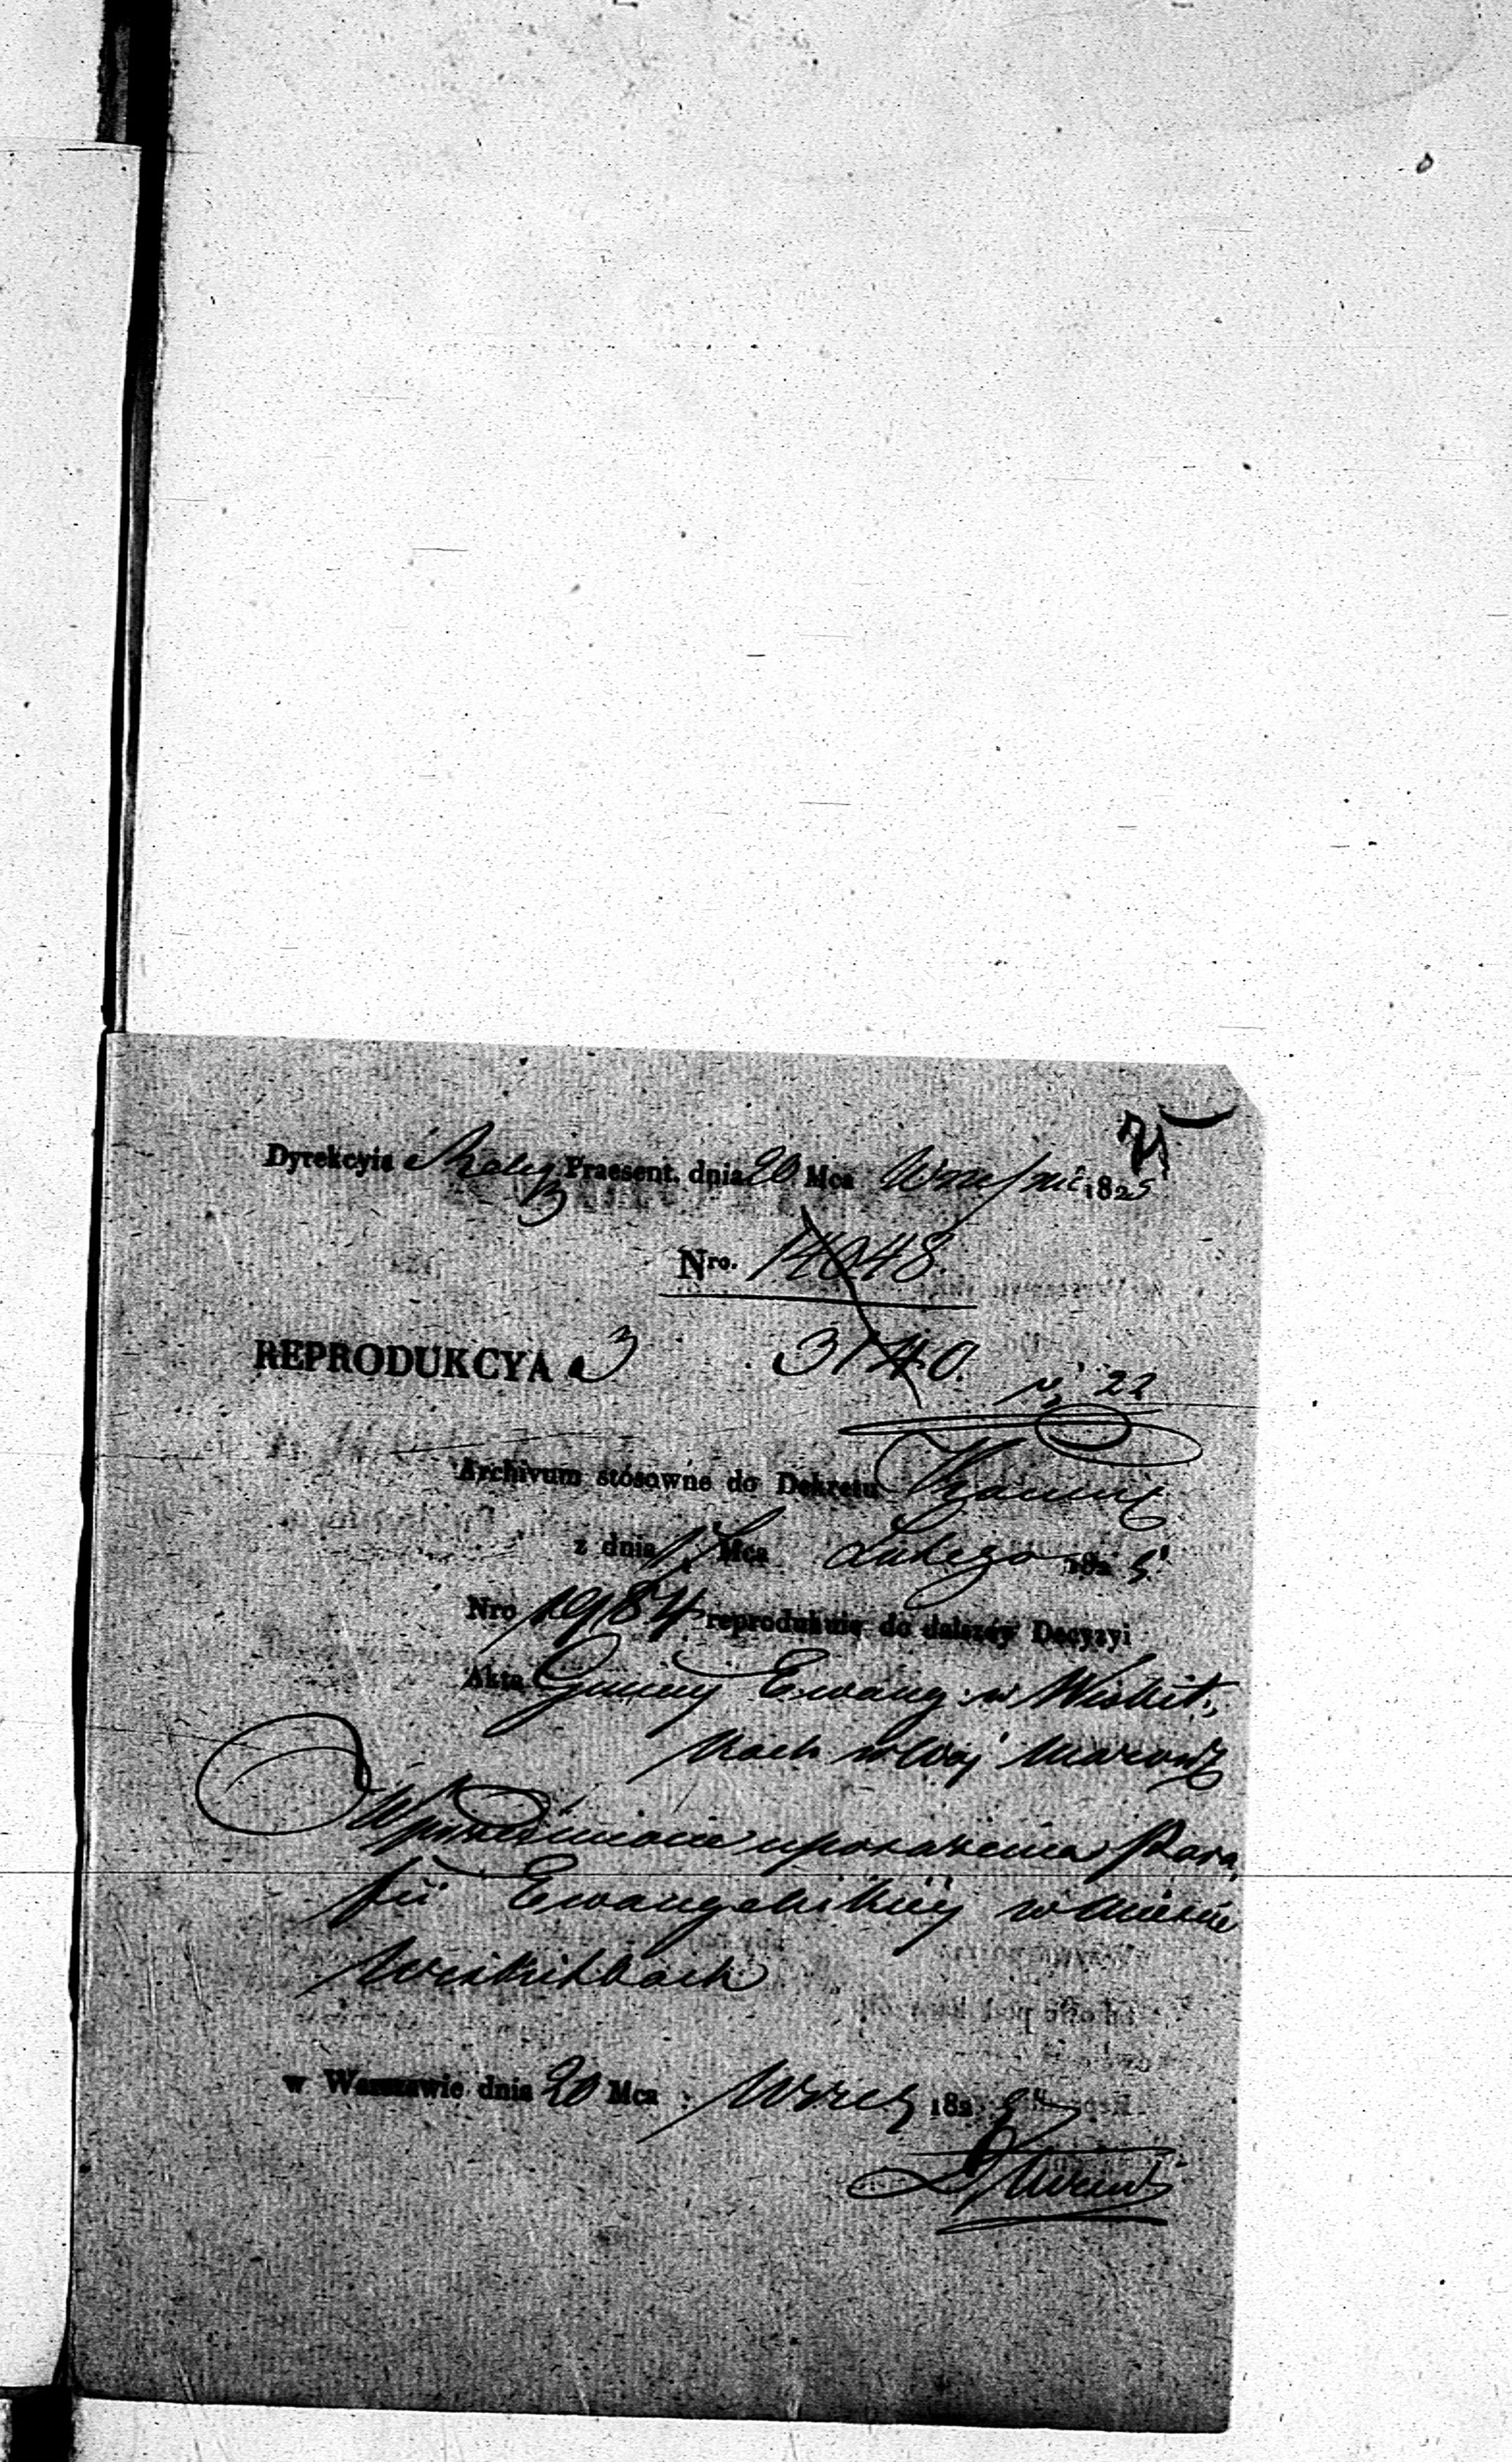 75
Dyrekcyia Praesent. dnia 20 Mca Wrześnie 1825
Nro. 14048.
REPRODUKCYA 3 3140.
22
Archivum stósowne do Dekretu
z dnia 17 Mca Lutego 1825
Nro 1984 reprodukuie do dalszéy Decyzyi
Akta Gminy Ewang: w Wiskit:
kach w Woj Mazow
uposażenia Para
fii Ewangelickiéy w Mieście
Wiskitkach
w Warszawie dnia 20 Mca : Wrześ 1825